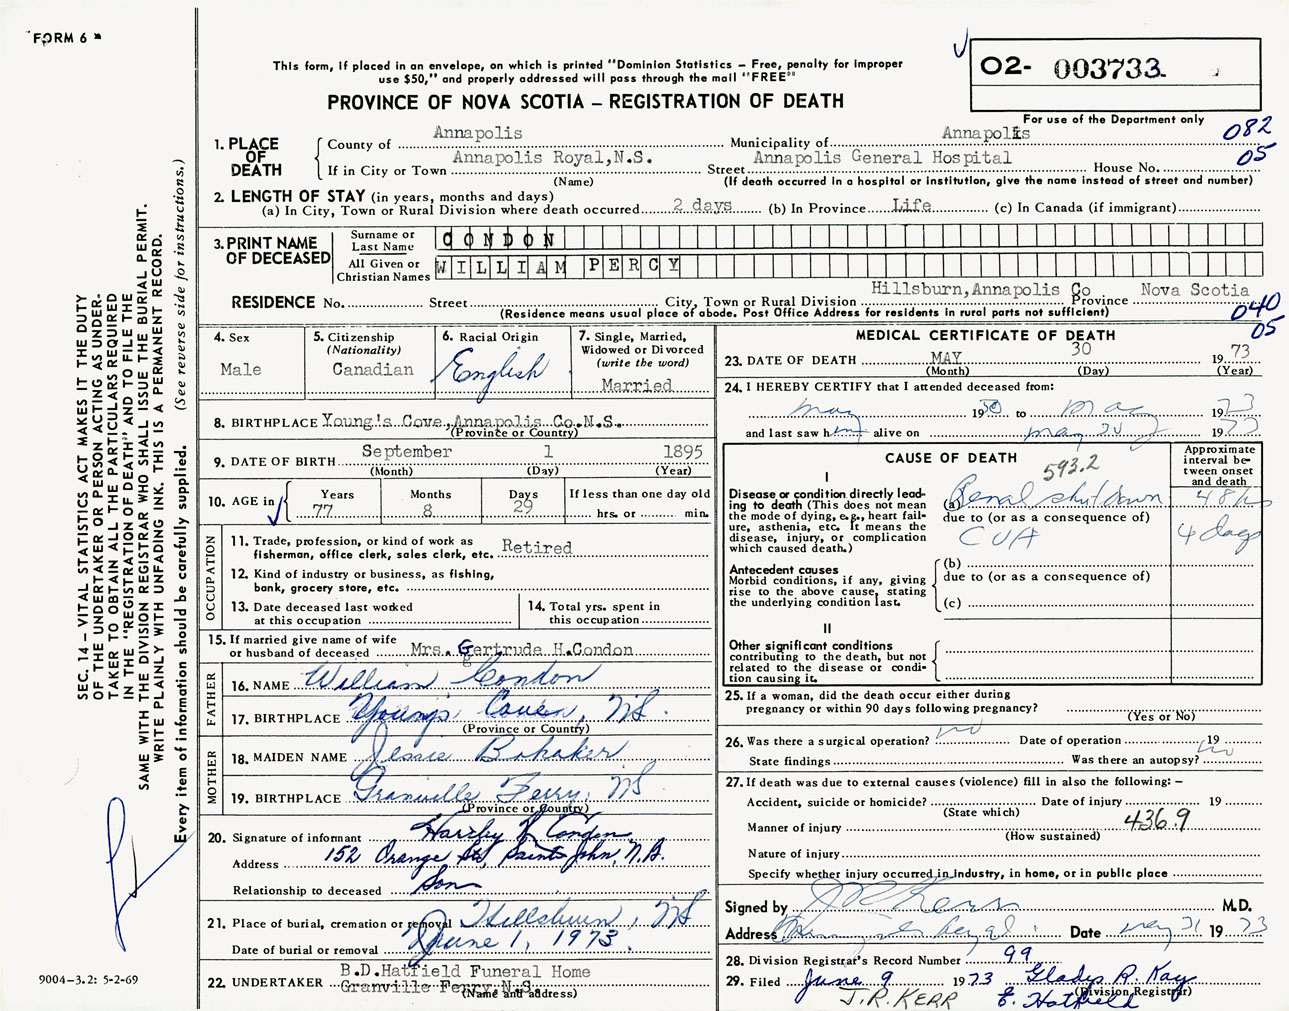 FORM 6
This form, if placed in an envelope, on which is printed "Dominion Statistics – Free, penalty for improper
use $50," and properly addressed will pass through the mail "FREE"
PROVINCE OF NOVA SCOTIA – REGISTRATION OF DEATH
02- 003733
For use of the Department only
082
05
1. PLACE OF DEATH
County of Annapolis Municipality of Annapolis
If in City or Town Annapolis Royal,N.S. Street Annapolis General Hospital House No.
(Name) (If death occurred in a hospital or institution, give the name instead of street and number)
2. LENGTH OF STAY (in years, months and days)
(a) In City, Town or Rural Division where death occurred 2 days (b) In Province Life (c) In Canada (if immigrant)
3. PRINT NAME OF DECEASED
Surname or Last Name CONDON
All Given or Christian Names WILLIAM PERCY
RESIDENCE No. Street City, Town or Rural Division Hillsburn,Annapolis Co Province Nova Scotia
(Residence means usual place of abode. Post Office Address for residents in rural parts not sufficient)
040
05
4. Sex
Male
5. Citizenship
(Nationality)
Canadian
6. Racial Origin
English
7. Single, Married,
Widowed or Divorced
(write the word)
Married
8. BIRTHPLACE Young's Cove,Annapolis Co.N.S.
(Province or Country)
9. DATE OF BIRTH September 1 1895
(Month) (Day) (Year)
10. AGE in
Years Months Days If less than one day old
77 8 29 hrs. or min.
OCCUPATION
11. Trade, profession, or kind of work as
fisherman, office clerk, sales clerk, etc. Retired
12. Kind of industry or business, as fishing,
bank, grocery store, etc.
13. Date deceased last worked
at this occupation
14. Total yrs. spent in
this occupation
15. If married give name of wife
or husband of deceased Mrs. Gertrude H.Condon
FATHER
16. NAME William Condon
17. BIRTHPLACE Young's Cove, NS.
(Province or Country)
MOTHER
18. MAIDEN NAME Jessie Bohaker
19. BIRTHPLACE Granville Ferry, NS
(Province or Country)
20. Signature of informant Condon
Address 152 Orange St, Saint John, N.B.
Relationship to deceased Son
21. Place of burial, cremation or removal Hillsburn, NS
Date of burial or removal June 1, 1973.
22. UNDERTAKER B.D.Hatfield Funeral Home
Granville Ferry,N.S.
(Name and address)
MEDICAL CERTIFICATE OF DEATH
23. DATE OF DEATH MAY 30 1973
(Month) (Day) (Year)
24. I HEREBY CERTIFY that I attended deceased from:
May 19 to May 1973
and last saw him alive on May 1973
CAUSE OF DEATH
593.2
Approximate
interval be-
tween onset
and death
I
Disease or condition directly lead-
ing to death (This does not mean
the mode of dying, e.g., heart fail-
ure, asthenia, etc. It means the
disease, injury, or complication
which caused death.)
(a) Renal shutdown 48 hrs
due to (or as a consequence of)
CVA 4 days
Antecedent causes
Morbid conditions, if any, giving
rise to the above cause, stating
the underlying condition last.
(b)
due to (or as a consequence of)
(c)
II
Other significant conditions
contributing to the death, but not
related to the disease or condi-
tion causing it.
25. If a woman, did the death occur either during
pregnancy or within 90 days following pregnancy?
(Yes or No)
26. Was there a surgical operation? no Date of operation 19
State findings Was there an autopsy? no
27. If death was due to external causes (violence) fill in also the following: –
Accident, suicide or homicide? Date of injury 19
(State which)
Manner of injury 436.9
(How sustained)
Nature of injury
Specify whether injury occurred in industry, in home, or in public place
Signed by J R Kerr M.D.
Address Annapolis Royal Date May 31 1973
28. Division Registrar's Record Number 99
29. Filed June 9 1973 Gladys R. Kay
(Division Registrar)
J.R. KERR E. Hatfield
SEC. 14 – VITAL STATISTICS ACT MAKES IT THE DUTY
OF THE UNDERTAKER OR PERSON ACTING AS UNDER-
TAKER TO OBTAIN ALL THE PARTICULARS REQUIRED
IN THE "REGISTRATION OF DEATH" AND TO FILE THE
SAME WITH THE DIVISION REGISTRAR WHO SHALL ISSUE THE BURIAL PERMIT.
WRITE PLAINLY WITH UNFADING INK. THIS IS A PERMANENT RECORD.
Every item of information should be carefully supplied. (See reverse side for instructions.)
9004–3.2: 5-2-69